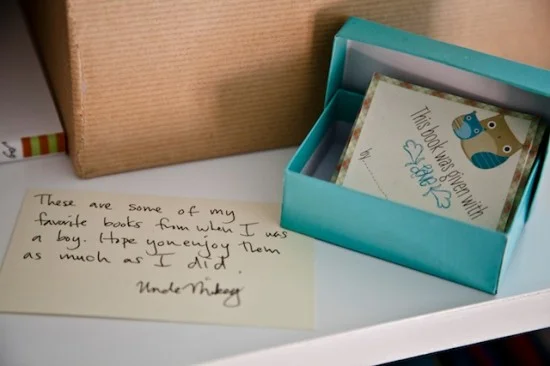 These are some of my
favorite books from when I was
a boy. Hope you enjoy them
as much as I did.
Uncle Mikey
This book was given with
love
by